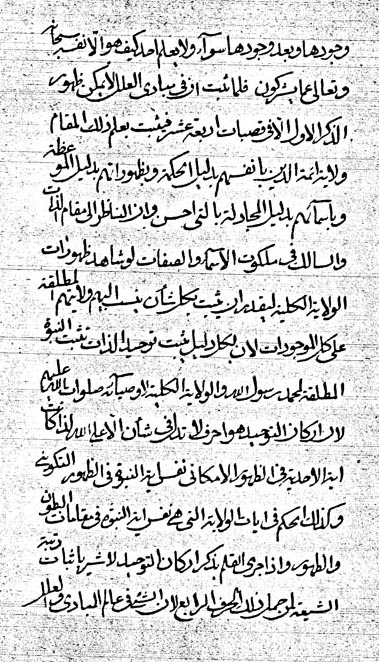 وجودها وبعد وجودها سواء ولا يعلم احد كيف هو الا نفسه سبحانه
وتعالى عما يشركون فلما ثبت ان في مبادى العلل لا يمكن ظهور
الذكر الاول الا في قصبات اربعة عشر فيثبت بعلم ذلك المقام
ولاية ائمة الدين بانفسهم بدليل الحكمة وبظهوراتهم بدليل الموعظة
وباسمائهم بدليل المجادلة بالتي احسن وان الناظر الى مقام الذات
والسالك في ملكوت الاسماء والصفات لو شاهد ظهورات
الولاية الكلية ليقدر ان يثبت بكل شأن ينسب اليهم ولايتهم المطلقة
على كل الموجودات لان بكل دليل يثبت توحيد الذات تثبت النبوة
المطلقة لمحمد رسول الله والولاية الكلية لاوصيائه صلوات الله عليهم
لان اركان التوحيد هو احرف لا تدل في شأن الا على الله لذا كانت
اية الاحدية في الظهور الامكاني نفس اية النبوة في الظهور التكويني
وكذلك الحكم في ايات الولاية التي هي نفس اية النبوة في مقامات البطون
والظهور واذا جرى القلم بذكر اركان التوحيد لاشير باثبات رتبة
الشيعة لمن جهل ذلك الحرف الرابع لان الشيء في عالم المبادى والعلل